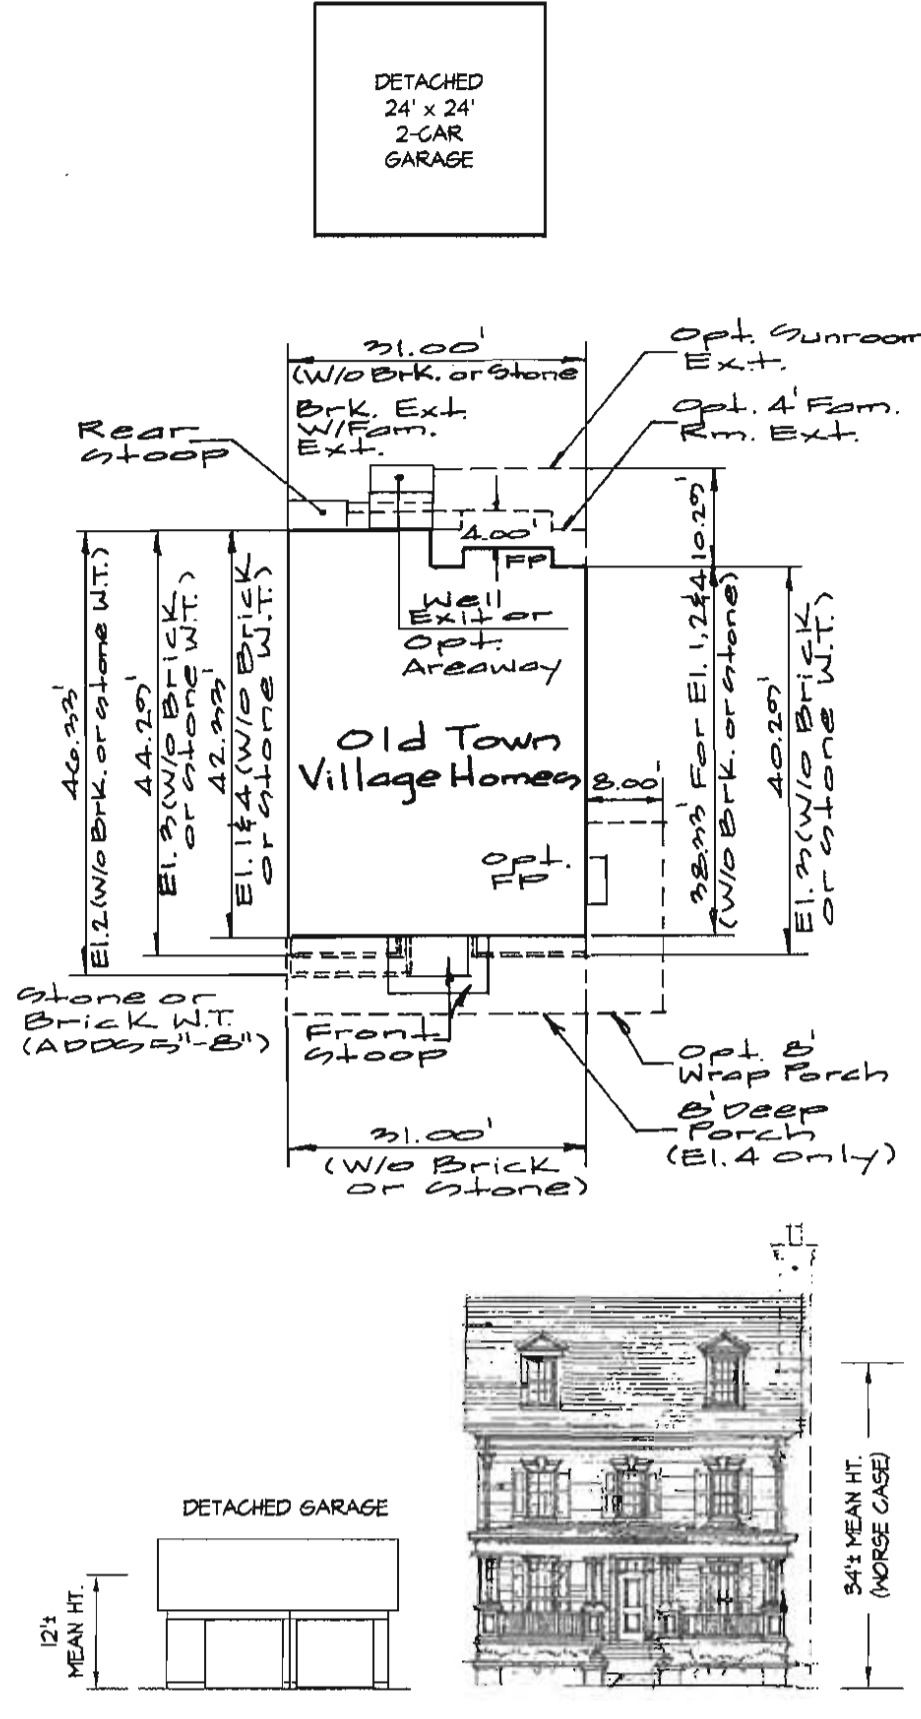 DETACHED
24' x 24'
2-CAR
GARAGE
31.00'
(W/o Brk. or Stone
Brk. Ext.
W/Fam.
Ext.
Opt. Sunroom
Ext.
Opt. 4' Fam.
Rm. Ext.
Rear
Stoop
4.00'
FP
Well
Exit or
Opt.
Areaway
46.33'
El.2 (W/o Brk. or Stone W.T.)
44.29'
El. 3 (W/o Brick
or Stone W.T.)
42.33'
El. 1 & 4 (W/o Brick
or Stone W.T.)
Old Town
Village Homes
8.00'
Opt.
FP
10.29'
38.33' For El. 1, 2 & 4
(W/o Brk. or Stone)
40.29'
El. 3 (W/o Brick
or Stone W.T.)
Stone or
Brick W.T.
(ADDS 5"-8")
Front
Stoop
Opt. 8'
Wrap Porch
8' Deep
Porch
(El. 4 Only)
31.00'
(W/o Brick
or Stone)
DETACHED GARAGE
12'±
MEAN HT.
34'± MEAN HT.
(WORSE CASE)